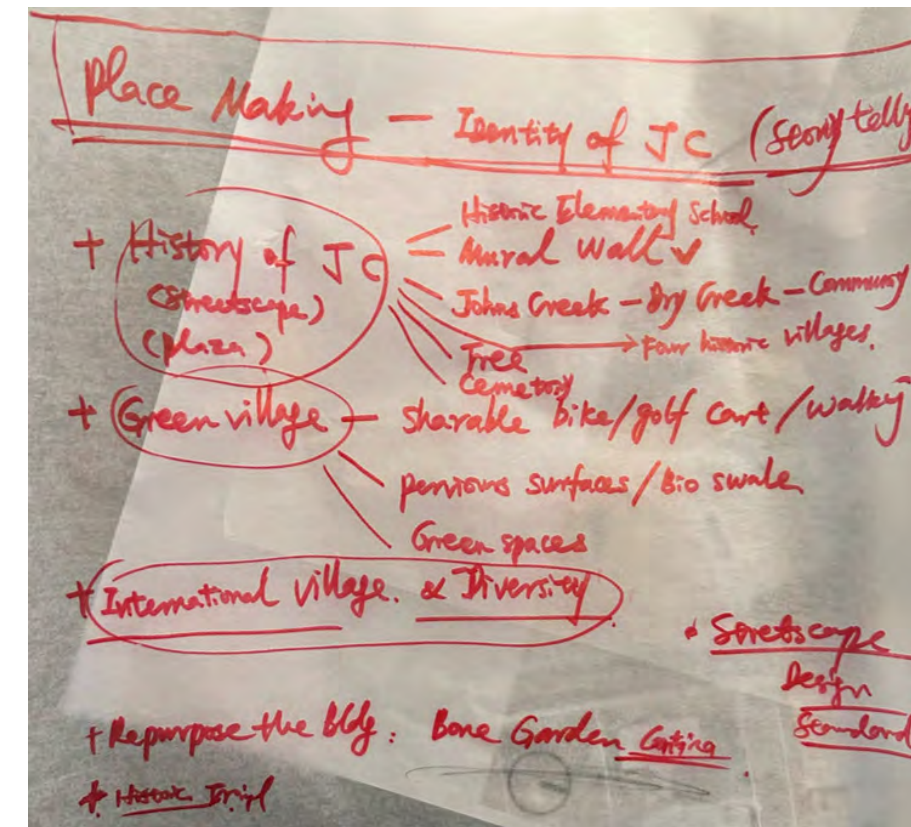 Place Making – Identity of JC (Story telly
Historic Elementary School
+ History of JC – Mural Wall ✓
(streetscape)
Johns Creek – Dry Creek – Community
(plaza)
→ Four historic villages.
Tree
Cemetory
+ Green village – sharable bike/golf cart/walky
pervious surfaces/Bio swale
Green spaces
+ International village. & Diversity
* Streetscape
Design
Standard
+ Repurpose the bldg: Bone Garden Cantina
* Historic